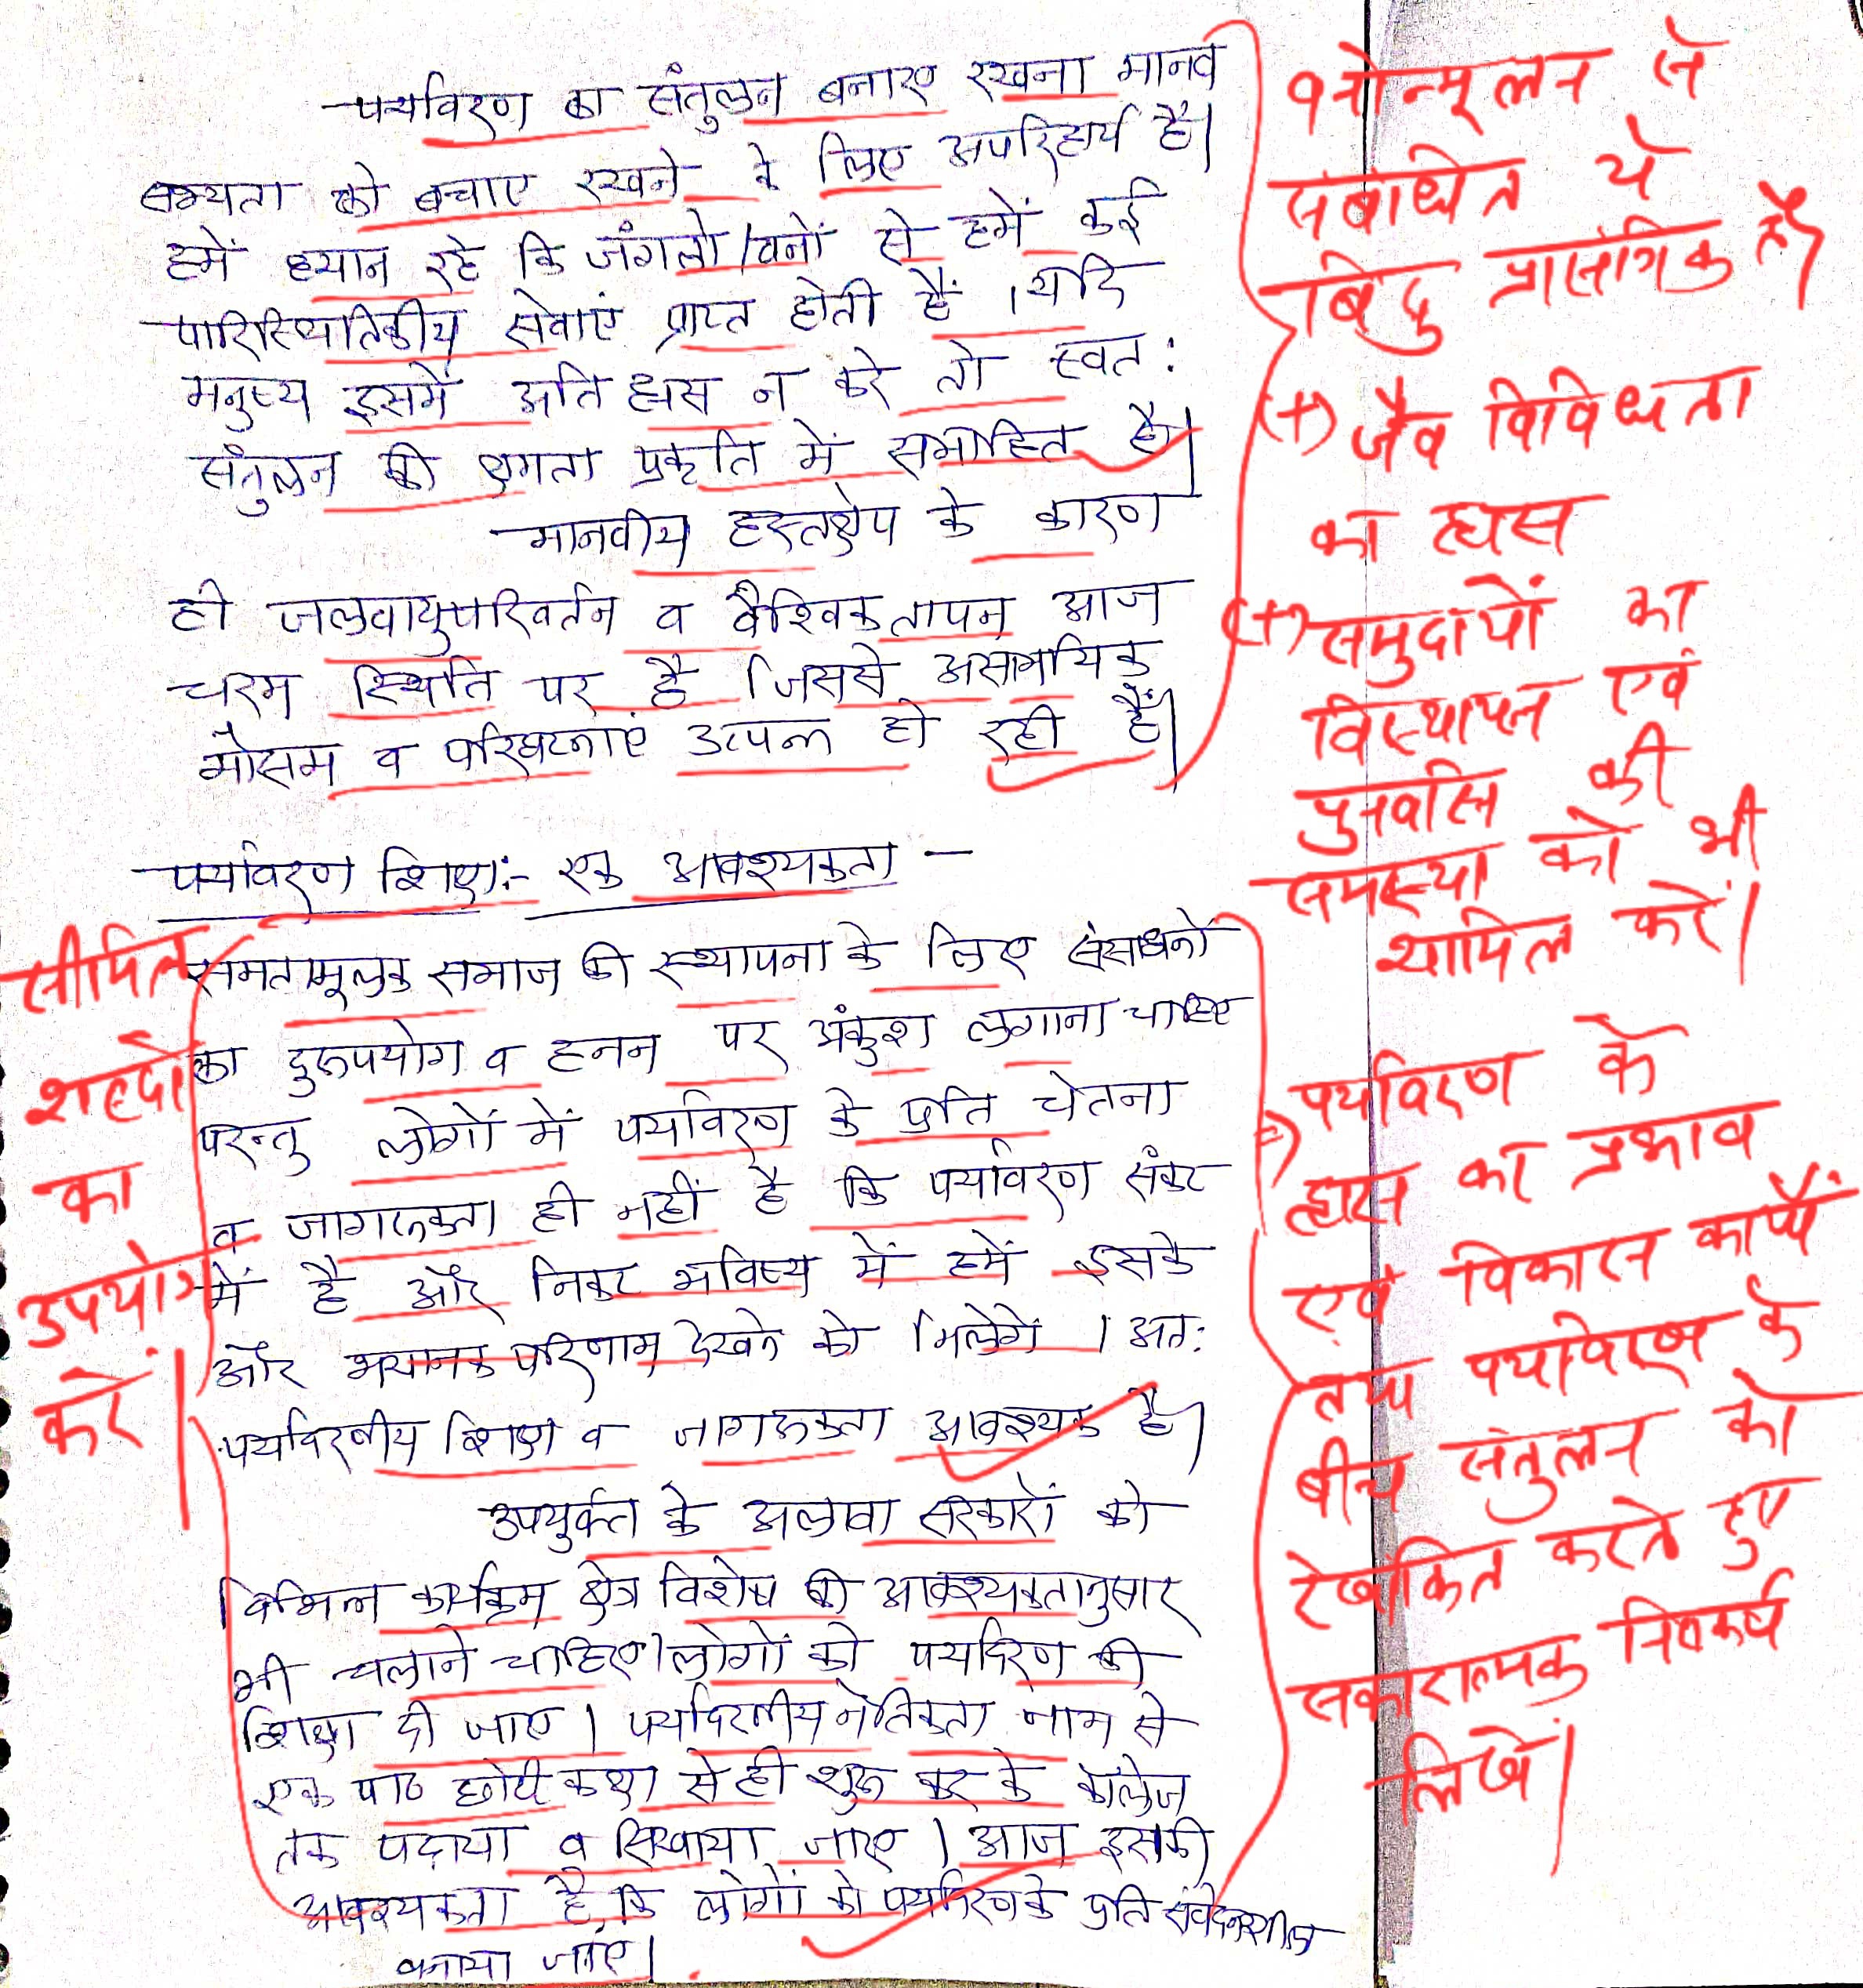 पर्यावरण का संतुलन बनाए रखना मानव
सभ्यता को बचाए रखने के लिए अपरिहार्य है।
हमें ध्यान रहे कि जंगलों/वनों से हमें कई
पारिस्थितिकीय सेवाएं प्राप्त होती हैं । यदि
मनुष्य इसमें अति ह्रास न करे तो स्वत:
संतुलन की क्षमता प्रकृति में समाहित है।
मानवीय हस्तक्षेप के कारण
ही जलवायु परिवर्तन व वैश्विक तापन आज
चरम स्थिति पर है जिससे असामयिक
मौसम व परिघटनाएं उत्पन्न हो रही हैं।
पर्यावरण शिक्षा:- एक आवश्यकता -
समतामूलक समाज की स्थापना के लिए संसाधनों
का दुरुपयोग व हनन पर अंकुश लगाना चाहिए
परन्तु लोगों में पर्यावरण के प्रति चेतना
व जागरूकता ही नहीं है कि पर्यावरण संकट
में है और निकट भविष्य में हमें इसके
और भयानक परिणाम देखने को मिलेंगे । अत:
पर्यावरणीय शिक्षा व जागरूकता आवश्यक है।
उपर्युक्त के अलावा सरकारों को
विभिन्न कार्यक्रम क्षेत्र विशेष की आवश्यकतानुसार
भी चलाने चाहिए। लोगों को पर्यावरण की
शिक्षा दी जाए । पर्यावरणीय नैतिकता नाम से
एक पाठ छोटी कक्षा से ही शुरू कर के कॉलेज
तक पढ़ाया व सिखाया जाए । आज इसकी
आवश्यकता है कि लोगों को पर्यावरण के प्रति संवेदनशील
बनाया जाए।
वनोन्मूलन से
संबंधित ये
बिंदु प्रासंगिक हैं
(+) जैव विविधता
का ह्रास
(+) समुदायों का
विस्थापन एवं
पुनर्वास की
समस्या को भी
शामिल करें।
⇒) पर्यावरण के
ह्रास का प्रभाव
एवं विकास कार्यों
तथा पर्यावरण के
बीच संतुलन को
रेखांकित करते हुए
सकारात्मक निष्कर्ष
लिखें।
सीमित
शब्दों
का
उपयोग
करें।